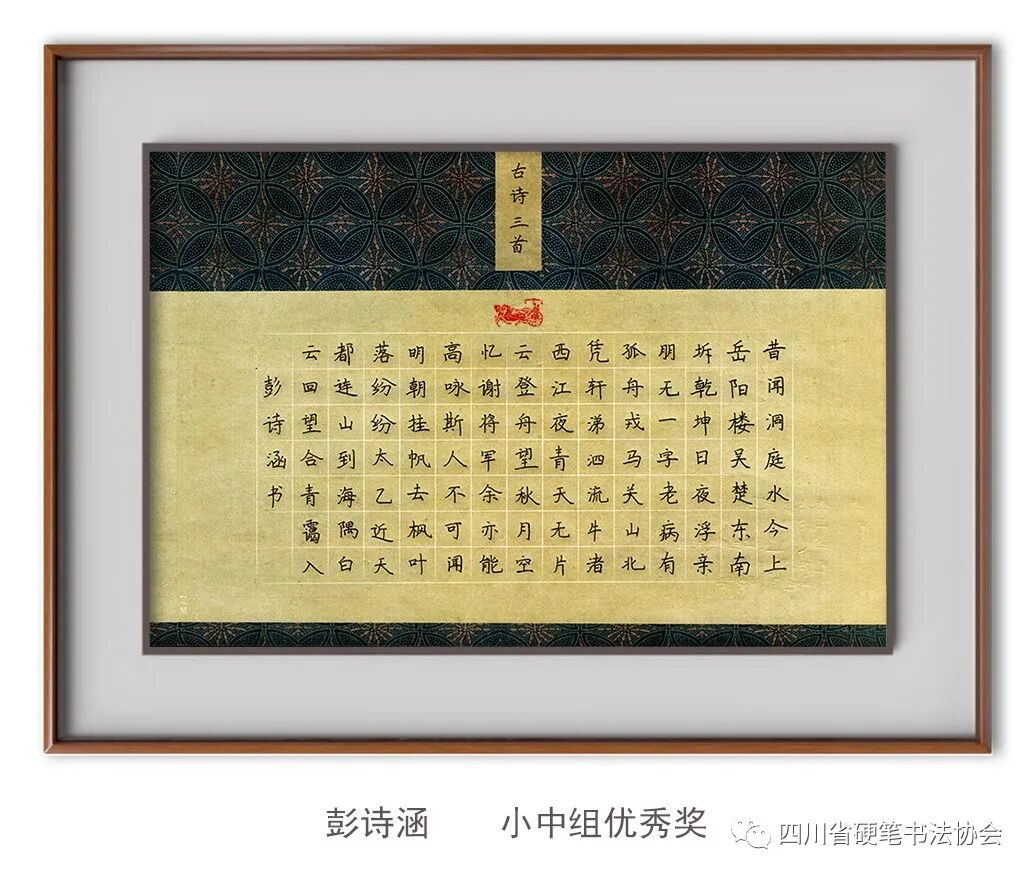 古诗三首
昔闻洞庭水今上
岳阳楼吴楚东南
坼乾坤日夜浮亲
朋无一字老病有
孤舟戎马关山北
凭轩涕泗流牛渚
西江夜青天无片
云登舟望秋月空
忆谢将军余亦能
高咏斯人不可闻
明朝挂帆去枫叶
落纷纷太乙近天
都连山到海隅白
云回望合青霭入
彭诗涵书
彭诗涵 小中组优秀奖
四川省硬笔书法协会